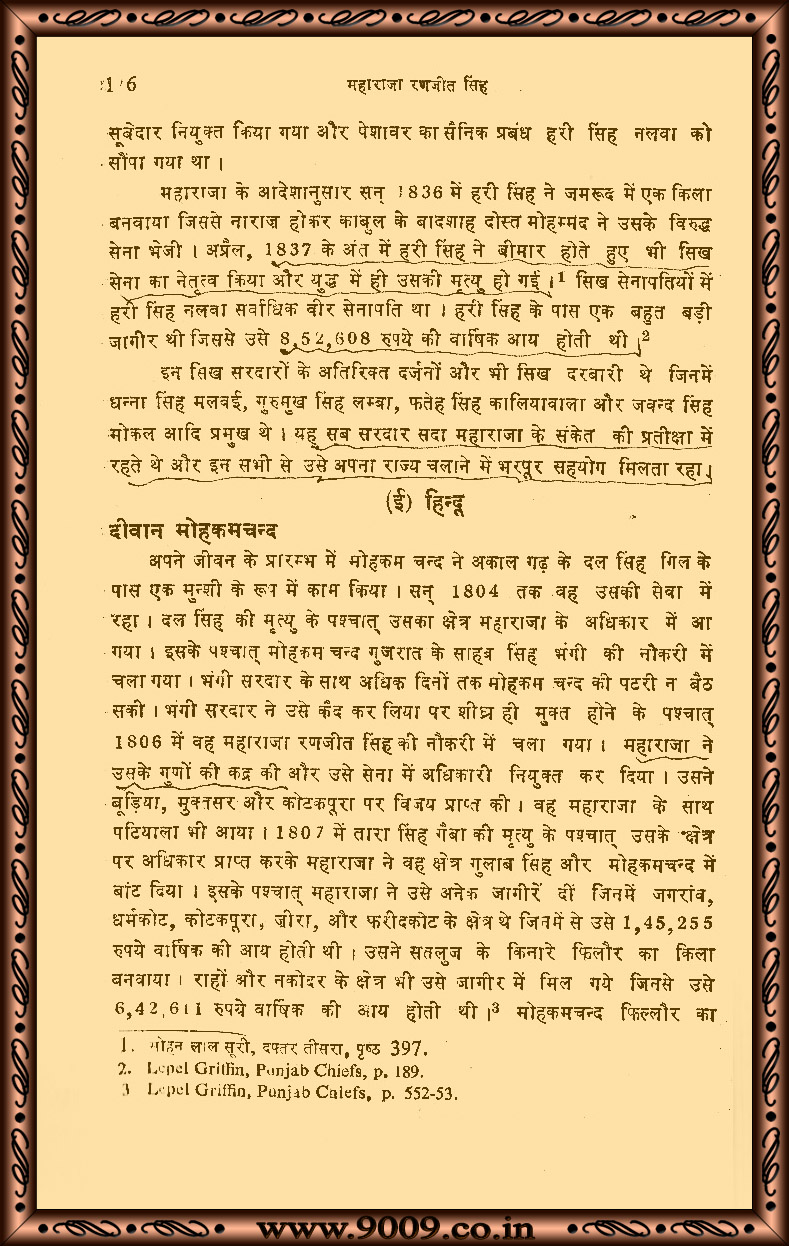 176 महाराजा रणजीत सिंह
सूबेदार नियुक्त किया गया और पेशावर का सैनिक प्रबंध हरी सिंह नलवा को
सौंपा गया था ।
महाराजा के आदेशानुसार सन् 1836 में हरी सिंह ने जमरूद में एक किला
बनवाया जिससे नाराज़ होकर काबुल के बादशाह दोस्त मोहम्मद ने उसके विरुद्ध
सेना भेजी । अप्रैल, 1837 के अंत में हरी सिंह ने बीमार होते हुए भी सिख
सेना का नेतृत्व किया और युद्ध में ही उसकी मृत्यु हो गई ।1 सिख सेनापतियों में
हरी सिंह नलवा सर्वाधिक वीर सेनापति था । हरी सिंह के पास एक बहुत बड़ी
जागीर थी जिससे उसे 8,52,608 रुपये की वार्षिक आय होती थी ।2
इन सिख सरदारों के अतिरिक्त दर्जनों और भी सिख दरबारी थे जिनमें
धन्ना सिंह मलवई, गुरुमुख सिंह लम्बा, फतेह सिंह कालियावाला और जवन्द सिंह
मोकल आदि प्रमुख थे । यह सब सरदार सदा महाराजा के संकेत की प्रतीक्षा में
रहते थे और इन सभी से उसे अपना राज्य चलाने में भरपूर सहयोग मिलता रहा ।
(ई) हिन्दू
दीवान मोहकमचन्द
अपने जीवन के प्रारम्भ में मोहकम चन्द ने अकाल गढ़ के दल सिंह गिल के
पास एक मुन्शी के रूप में काम किया । सन् 1804 तक वह उसकी सेवा में
रहा । दल सिंह की मृत्यु के पश्चात् उसका क्षेत्र महाराजा के अधिकार में आ
गया । इसके पश्चात् मोहकम चन्द गुजरात के साहब सिंह भंगी की नौकरी में
चला गया । भंगी सरदार के साथ अधिक दिनों तक मोहकम चन्द की पटरी न बैठ
सकी । भंगी सरदार ने उसे कैद कर लिया पर शीघ्र ही मुक्त होने के पश्चात्
1806 में वह महाराजा रणजीत सिंह की नौकरी में चला गया । महाराजा ने
उसके गुणों की कद्र की और उसे सेना में अधिकारी नियुक्त कर दिया । उसने
बूड़िया, मुक्तसर और कोटकपूरा पर विजय प्राप्त की । वह महाराजा के साथ
पटियाला भी आया । 1807 में तारा सिंह गैबा की मृत्यु के पश्चात् उसके क्षेत्र
पर अधिकार प्राप्त करके महाराजा ने वह क्षेत्र गुलाब सिंह और मोहकमचन्द में
बांट दिया । इसके पश्चात् महाराजा ने उसे अनेक जागीरें दीं जिनमें जगरांव,
धर्मकोट, कोटकपूरा, ज़ीरा, और फरीदकोट के क्षेत्र थे जिनमें से उसे 1,45,255
रुपये वार्षिक की आय होती थी । उसने सतलुज के किनारे फिलौर का किला
बनवाया । राहों और नकोदर के क्षेत्र भी उसे जागीर में मिल गये जिनसे उसे
6,42,611 रुपये वार्षिक की आय होती थी ।3 मोहकमचन्द फिल्लौर का
1. मोहन लाल सूरी, दफ्तर तीसरा, पृष्ठ 397.
2. Lepel Griffin, Punjab Chiefs, p. 189.
3 Lepel Griffin, Punjab Chiefs, p. 552-53.
www.9009.co.in